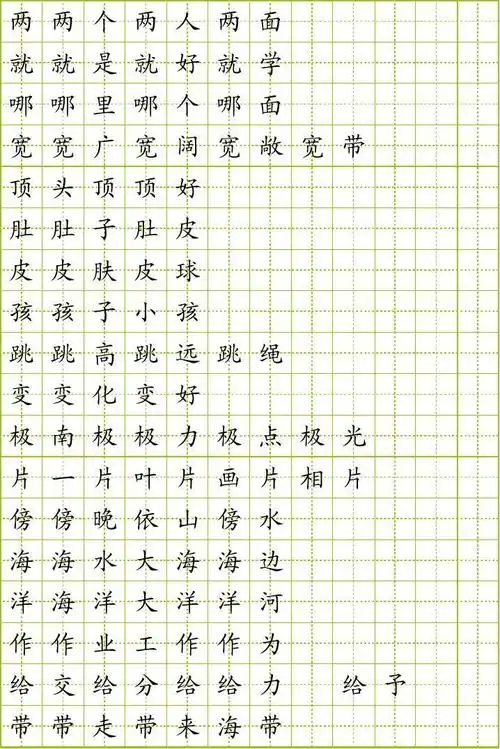 两两个两人两面
就就是就好就学
哪哪里哪个哪面
宽宽广宽阔宽敞宽带
顶头顶顶好
肚肚子肚皮
皮皮肤皮球
孩孩子小孩
跳跳高跳远跳绳
变变化变好
极南极极力极点极光
片一片叶片画片相片
傍傍晚依山傍水
海海水大海海边
洋海洋大洋洋河
作作业工作作为
给交给分给给力 给予
带带走带来海带